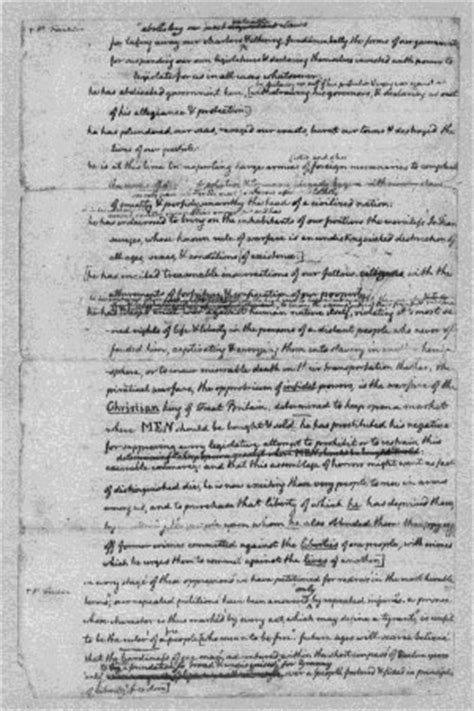 abolishing our most valuable laws
for taking away our charters & altering fundamentally the forms of our governments
for suspending our own legislatures & declaring themselves invested with power to
legislate for us in all cases whatsoever:
he has abdicated government here, [withdrawing his governors, & declaring us out
of his allegiance & protection]
he has plundered our seas, ravaged our coasts, burnt our towns & destroyed the
lives of our people:
he is at this time transporting large armies of foreign mercenaries to compleat
of cruelty & perfidy unworthy the head of a civilized nation:
he has endeavored to bring on the inhabitants of our frontiers the merciless Indian
savages, whose known rule of warfare is an undistinguished destruction of
all ages, sexes, & conditions [of existence:]
[he has incited treasonable insurrections of our fellow citizens, with the
allurements of forfeiture & confiscation of our property:
he has waged cruel war against human nature itself, violating it's most sa-
cred rights of life & liberty in the persons of a distant people who never of-
fended him, captivating & carrying them into slavery in another hemi-
sphere, or to incur miserable death in their transportation thither. this
piratical warfare, the opprobrium of infidel powers, is the warfare of the
Christian king of Great Britain. determined to keep open a market
where MEN should be bought & sold, he has prostituted his negative
for suppressing every legislative attempt to prohibit or to restrain this
execrable commerce: and that this assemblage of horrors might want no fact
of distinguished die, he is now exciting those very people to rise in arms
among us, and to purchase that liberty of which he has deprived them,
by upon whom he also obtruded them: thus paying
off former crimes committed against the liberties of one people, with crimes
which he urges them to commit against the lives of another.]
in every stage of these oppressions we have petitioned for redress in the most humble
terms; our repeated petitions have been answered only by repeated injuries. a prince
whose character is thus marked by every act which may define a tyrant, is unfit
to be the ruler of a people [who mean to be free. future ages will scarce believe
that the hardiness of one man, adventured within the short compass of twelve years
over a people fostered & fixed in principles
of freedom]